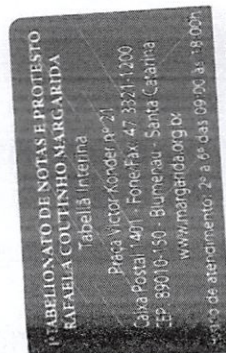 1º TABELIONATO DE NOTAS E PROTESTO
RAFAELA COUTINHO MARGARIDA
Tabeliã Interina
Praça Victor Konder nº 21
Caixa Postal 1401 - Fone/Fax: 47 3321-1200
CEP 89010-150 - Blumenau - Santa Catarina
www.margarida.org.br
de atendimento: 2ª a 6ª das 09:00 às 18:00h